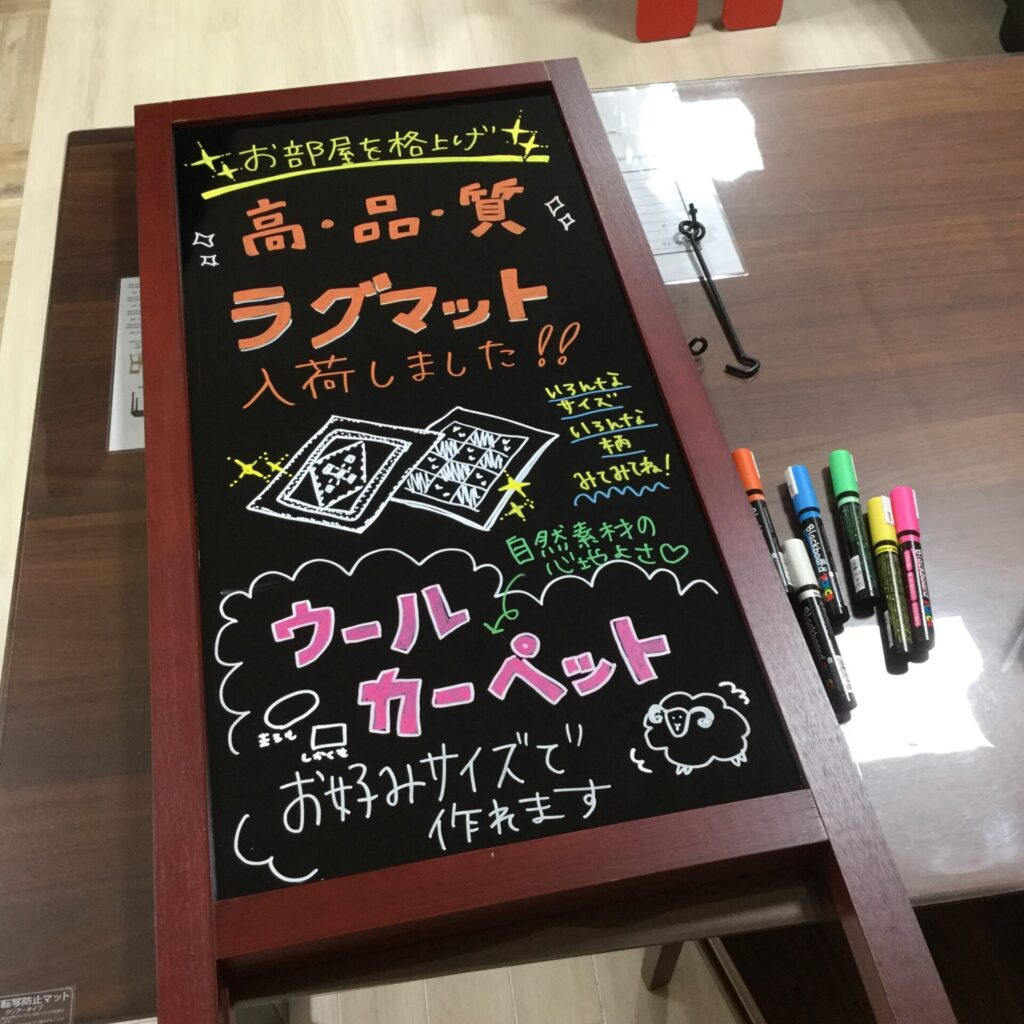 お部屋を格上げ
高・品・質
ラグマット
入荷しました!!
いろんな
サイズ
いろんな
柄
みてみてね!
自然素材の
心地よさ♡
ウール
カーペット
まるも
しかくも
お好みサイズで
作れます
Blackboard
Blackboard
転写防止マット
クリアータイプ